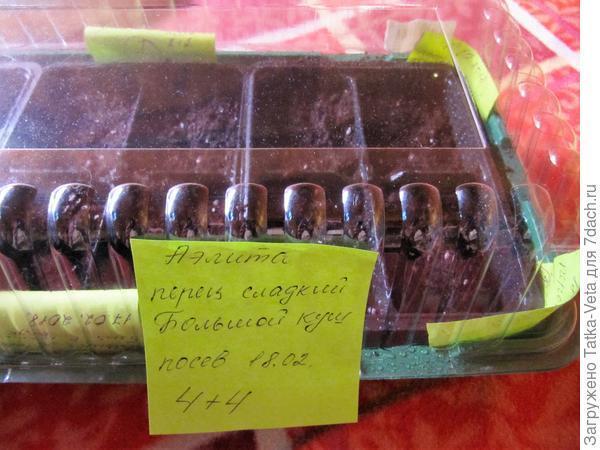 Аэлита
перец сладкий
Большой куш
посев 18.02.
4+4
17.02.2018
Загружено Tatka-Veta для 7dach.ru